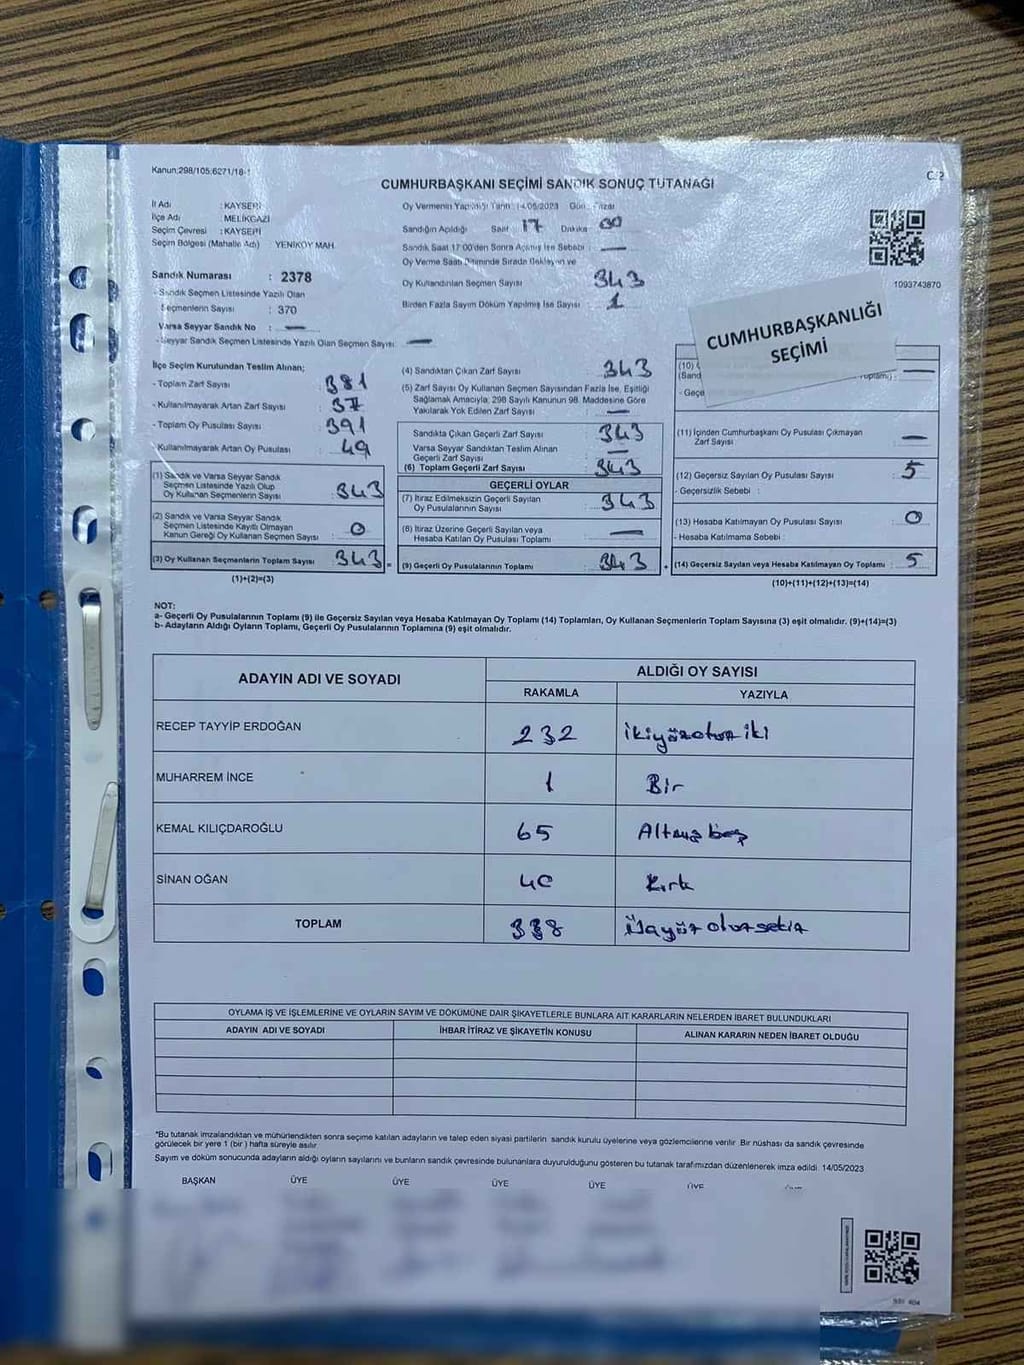 Kanun:298/105;6271/18-1
C/2
CUMHURBAŞKANI SEÇİMİ SANDIK SONUÇ TUTANAĞI
İl Adı : KAYSERİ
İlçe Adı : MELİKGAZİ
Seçim Çevresi : KAYSERİ
Seçim Bölgesi (Mahalle Adı) YENİKÖY MAH.
Sandık Numarası : 2378
- Sandık Seçmen Listesinde Yazılı Olan
Seçmenlerin Sayısı : 370
Varsa Seyyar Sandık No : —
- Seyyar Sandık Seçmen Listesinde Yazılı Olan Seçmen Sayısı: —
Oy Vermenin Yapıldığı Tarih :14/05/2023 Gün: Pazar
Sandığın Açıldığı Saat 17 Dakika 00
Sandık Saat 17:00'den Sonra Açılmış İse Sebebi : —
Oy Verme Saati Bitiminde Sırada Bekleyen ve
Oy Kullandırılan Seçmen Sayısı 343
Birden Fazla Sayım Döküm Yapılmış İse Sayısı 1
1093743870
CUMHURBAŞKANLIĞI
SEÇİMİ
İlçe Seçim Kurulundan Teslim Alınan;
- Toplam Zarf Sayısı : 381
- Kullanılmayarak Artan Zarf Sayısı : 37
- Toplam Oy Pusulası Sayısı : 391
- Kullanılmayarak Artan Oy Pusulası : 49
(1) Sandık ve Varsa Seyyar Sandık
Seçmen Listesinde Yazılı Olup
Oy Kullanan Seçmenlerin Sayısı : 343
(2) Sandık ve Varsa Seyyar Sandık
Seçmen Listesinde Kayıtlı Olmayan
Kanun Gereği Oy Kullanan Seçmen Sayısı : 0
(3) Oy Kullanan Seçmenlerin Toplam Sayısı : 343
(1)+(2)=(3)
(4) Sandıktan Çıkan Zarf Sayısı : 343
(5) Zarf Sayısı Oy Kullanan Seçmen Sayısından Fazla İse, Eşitliği
Sağlamak Amacıyla; 298 Sayılı Kanunun 98. Maddesine Göre
Yakılarak Yok Edilen Zarf Sayısı : —
Sandıkta Çıkan Geçerli Zarf Sayısı : 343
Varsa Seyyar Sandıktan Teslim Alınan
Geçerli Zarf Sayısı : —
(6) Toplam Geçerli Zarf Sayısı : 343
GEÇERLİ OYLAR
(7) İtiraz Edilmeksizin Geçerli Sayılan
Oy Pusulalarının Sayısı : 343
(8) İtiraz Üzerine Geçerli Sayılan veya
Hesaba Katılan Oy Pusulası Toplamı : —
(9) Geçerli Oy Pusulalarının Toplamı : 343
(10)
(Sand
- Geçe
(11) İçinden Cumhurbaşkanı Oy Pusulası Çıkmayan
Zarf Sayısı : —
(12) Geçersiz Sayılan Oy Pusulası Sayısı : 5
- Geçersizlik Sebebi :
(13) Hesaba Katılmayan Oy Pusulası Sayısı : 0
- Hesaba Katılmama Sebebi :
(14) Geçersiz Sayılan veya Hesaba Katılmayan Oy Toplamı : 5
(10)+(11)+(12)+(13)=(14)
NOT:
a- Geçerli Oy Pusulalarının Toplamı (9) ile Geçersiz Sayılan veya Hesaba Katılmayan Oy Toplamı (14) Toplamları, Oy Kullanan Seçmenlerin Toplam Sayısına (3) eşit olmalıdır. (9)+(14)=(3)
b- Adayların Aldığı Oyların Toplamı, Geçerli Oy Pusulalarının Toplamına (9) eşit olmalıdır.
ADAYIN ADI VE SOYADI
ALDIĞI OY SAYISI
RAKAMLA YAZIYLA
RECEP TAYYİP ERDOĞAN 232 ikiyüzotuz iki
MUHARREM İNCE 1 Bir
KEMAL KILIÇDAROĞLU 65 Altmış beş
SİNAN OĞAN 40 Kırk
TOPLAM 338 Üçyüz otuzsekiz
OYLAMA İŞ VE İŞLEMLERİNE VE OYLARIN SAYIM VE DÖKÜMÜNE DAİR ŞİKAYETLERLE BUNLARA AİT KARARLARIN NELERDEN İBARET BULUNDUKLARI
ADAYIN ADI VE SOYADI İHBAR İTİRAZ VE ŞİKAYETİN KONUSU ALINAN KARARIN NEDEN İBARET OLDUĞU
*Bu tutanak imzalandıktan ve mühürlendikten sonra seçime katılan adayların ve talep eden siyasi partilerin sandık kurulu üyelerine veya gözlemcilerine verilir. Bir nüshası da sandık çevresinde
görülecek bir yere 1 (bir ) hafta süreyle asılır.
Sayım ve döküm sonucunda adayların aldığı oyların sayılarını ve bunların sandık çevresinde bulunanlara duyurulduğunu gösteren bu tutanak tarafımızdan düzenlenerek imza edildi. 14/05/2023
BAŞKAN ÜYE ÜYE ÜYE ÜYE ÜYE